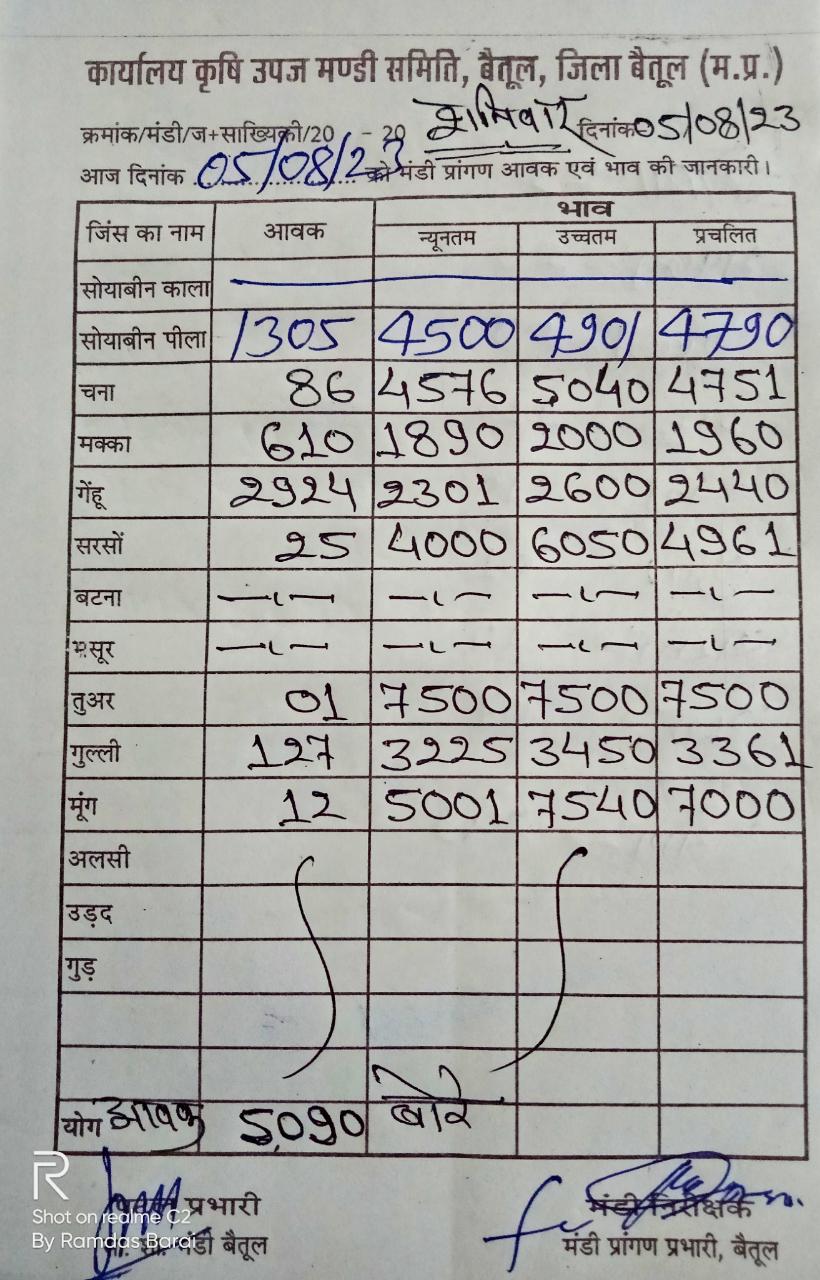 कार्यालय कृषि उपज मण्डी समिति, बैतूल, जिला बैतूल (म.प्र.)
क्रमांक/मंडी/ज+साख्यिकी/20 - 20 शनिवार दिनांक 05/08/23
आज दिनांक 05/08/23 को मंडी प्रांगण आवक एवं भाव की जानकारी।
जिंस का नाम आवक भाव
न्यूनतम उच्चतम प्रचलित
सोयाबीन काला
सोयाबीन पीला 1305 4500 4901 4790
चना 86 4576 5040 4751
मक्का 610 1890 2000 1960
गेंहू 2924 2301 2600 2440
सरसों 25 4000 6050 4961
बटना
मसूर
तुअर 01 7500 7500 7500
गुल्ली 127 3225 3450 3361
मूंग 12 5001 7540 7000
अलसी
उड़द
गुड़
योग आवक 5090 बोरे
प्रभारी मंडी निरीक्षक
मंडी बैतूल मंडी प्रांगण प्रभारी, बैतूल
Shot on realme C2
By Ramdas Bardi